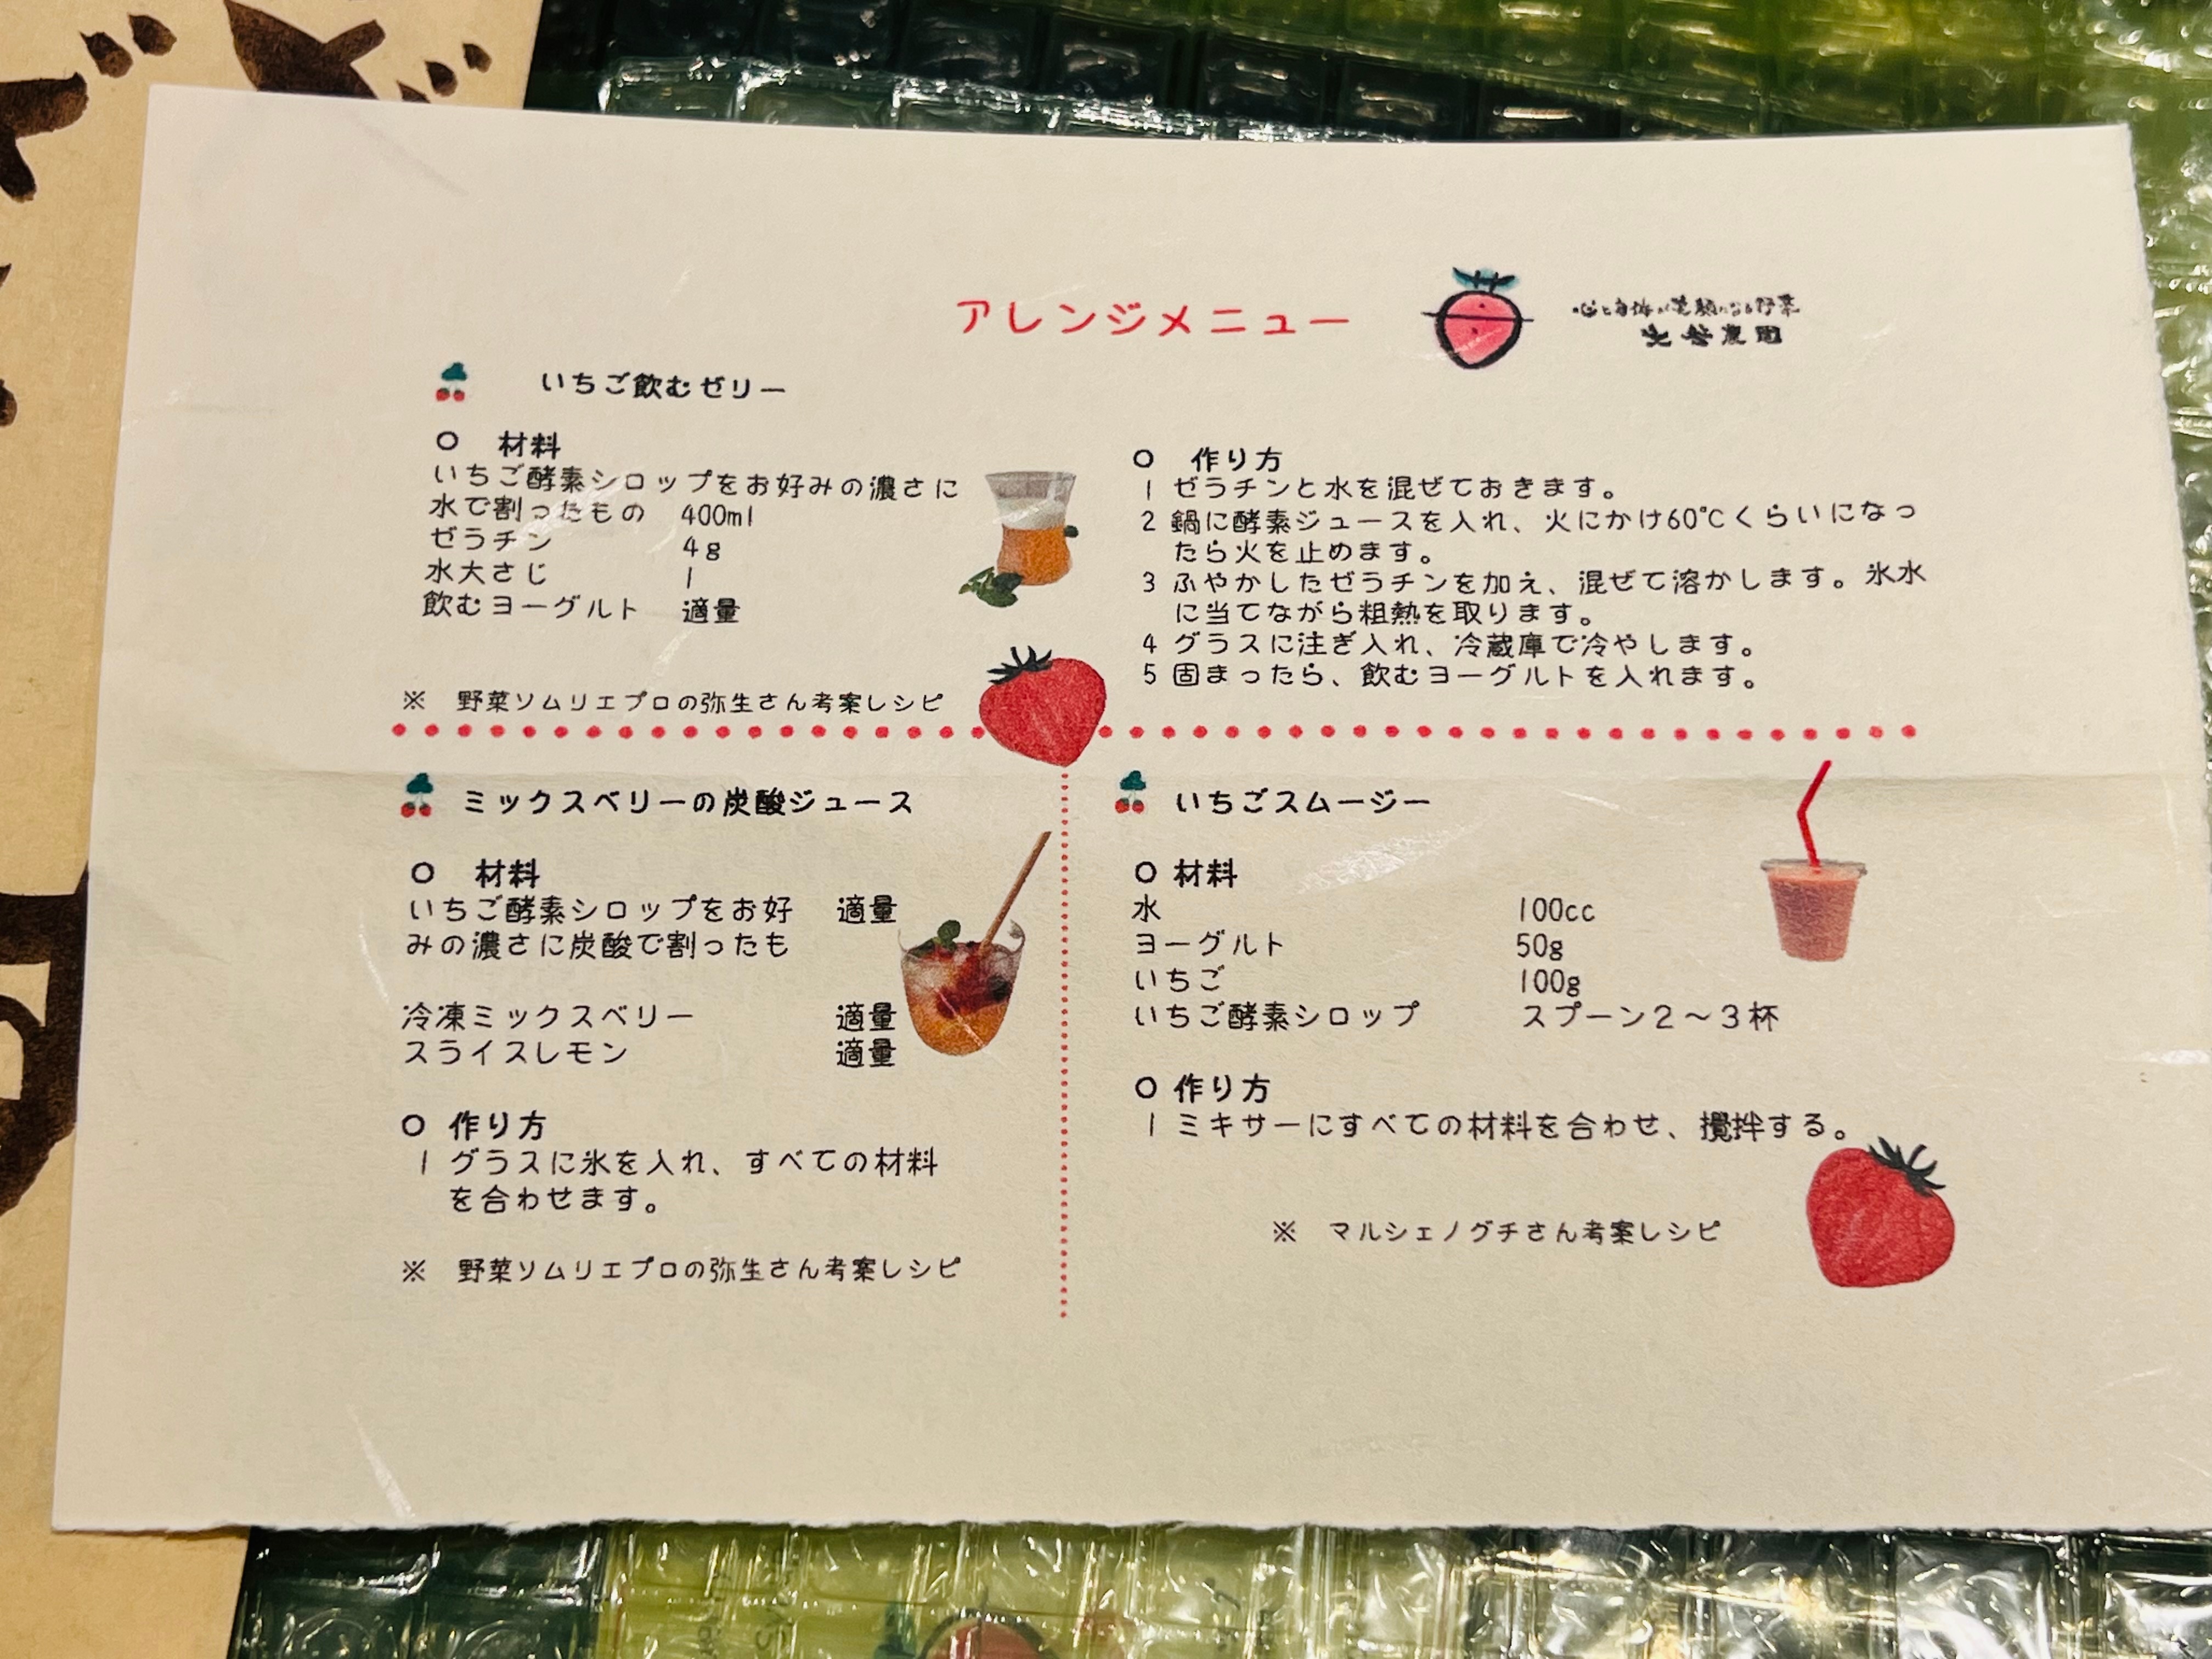 アレンジメニュー
心と身体が笑顔になる野菜
農園
いちご飲むゼリー
〇 材料
いちご酵素シロップをお好みの濃さに
水で割ったもの 400ml
ゼラチン 4g
水大さじ 1
飲むヨーグルト 適量
※ 野菜ソムリエプロの弥生さん考案レシピ
〇 作り方
1 ゼラチンと水を混ぜておきます。
2 鍋に酵素ジュースを入れ、火にかけ60℃くらいになっ
たら火を止めます。
3 ふやかしたゼラチンを加え、混ぜて溶かします。氷水
に当てながら粗熱を取ります。
4 グラスに注ぎ入れ、冷蔵庫で冷やします。
5 固まったら、飲むヨーグルトを入れます。
ミックスベリーの炭酸ジュース
〇 材料
いちご酵素シロップをお好 適量
みの濃さに炭酸で割ったも
冷凍ミックスベリー 適量
スライスレモン 適量
〇 作り方
1 グラスに氷を入れ、すべての材料
を合わせます。
※ 野菜ソムリエプロの弥生さん考案レシピ
いちごスムージー
〇 材料
水 100cc
ヨーグルト 50g
いちご 100g
いちご酵素シロップ スプーン2～3杯
〇 作り方
1 ミキサーにすべての材料を合わせ、攪拌する。
※ マルシェノグチさん考案レシピ